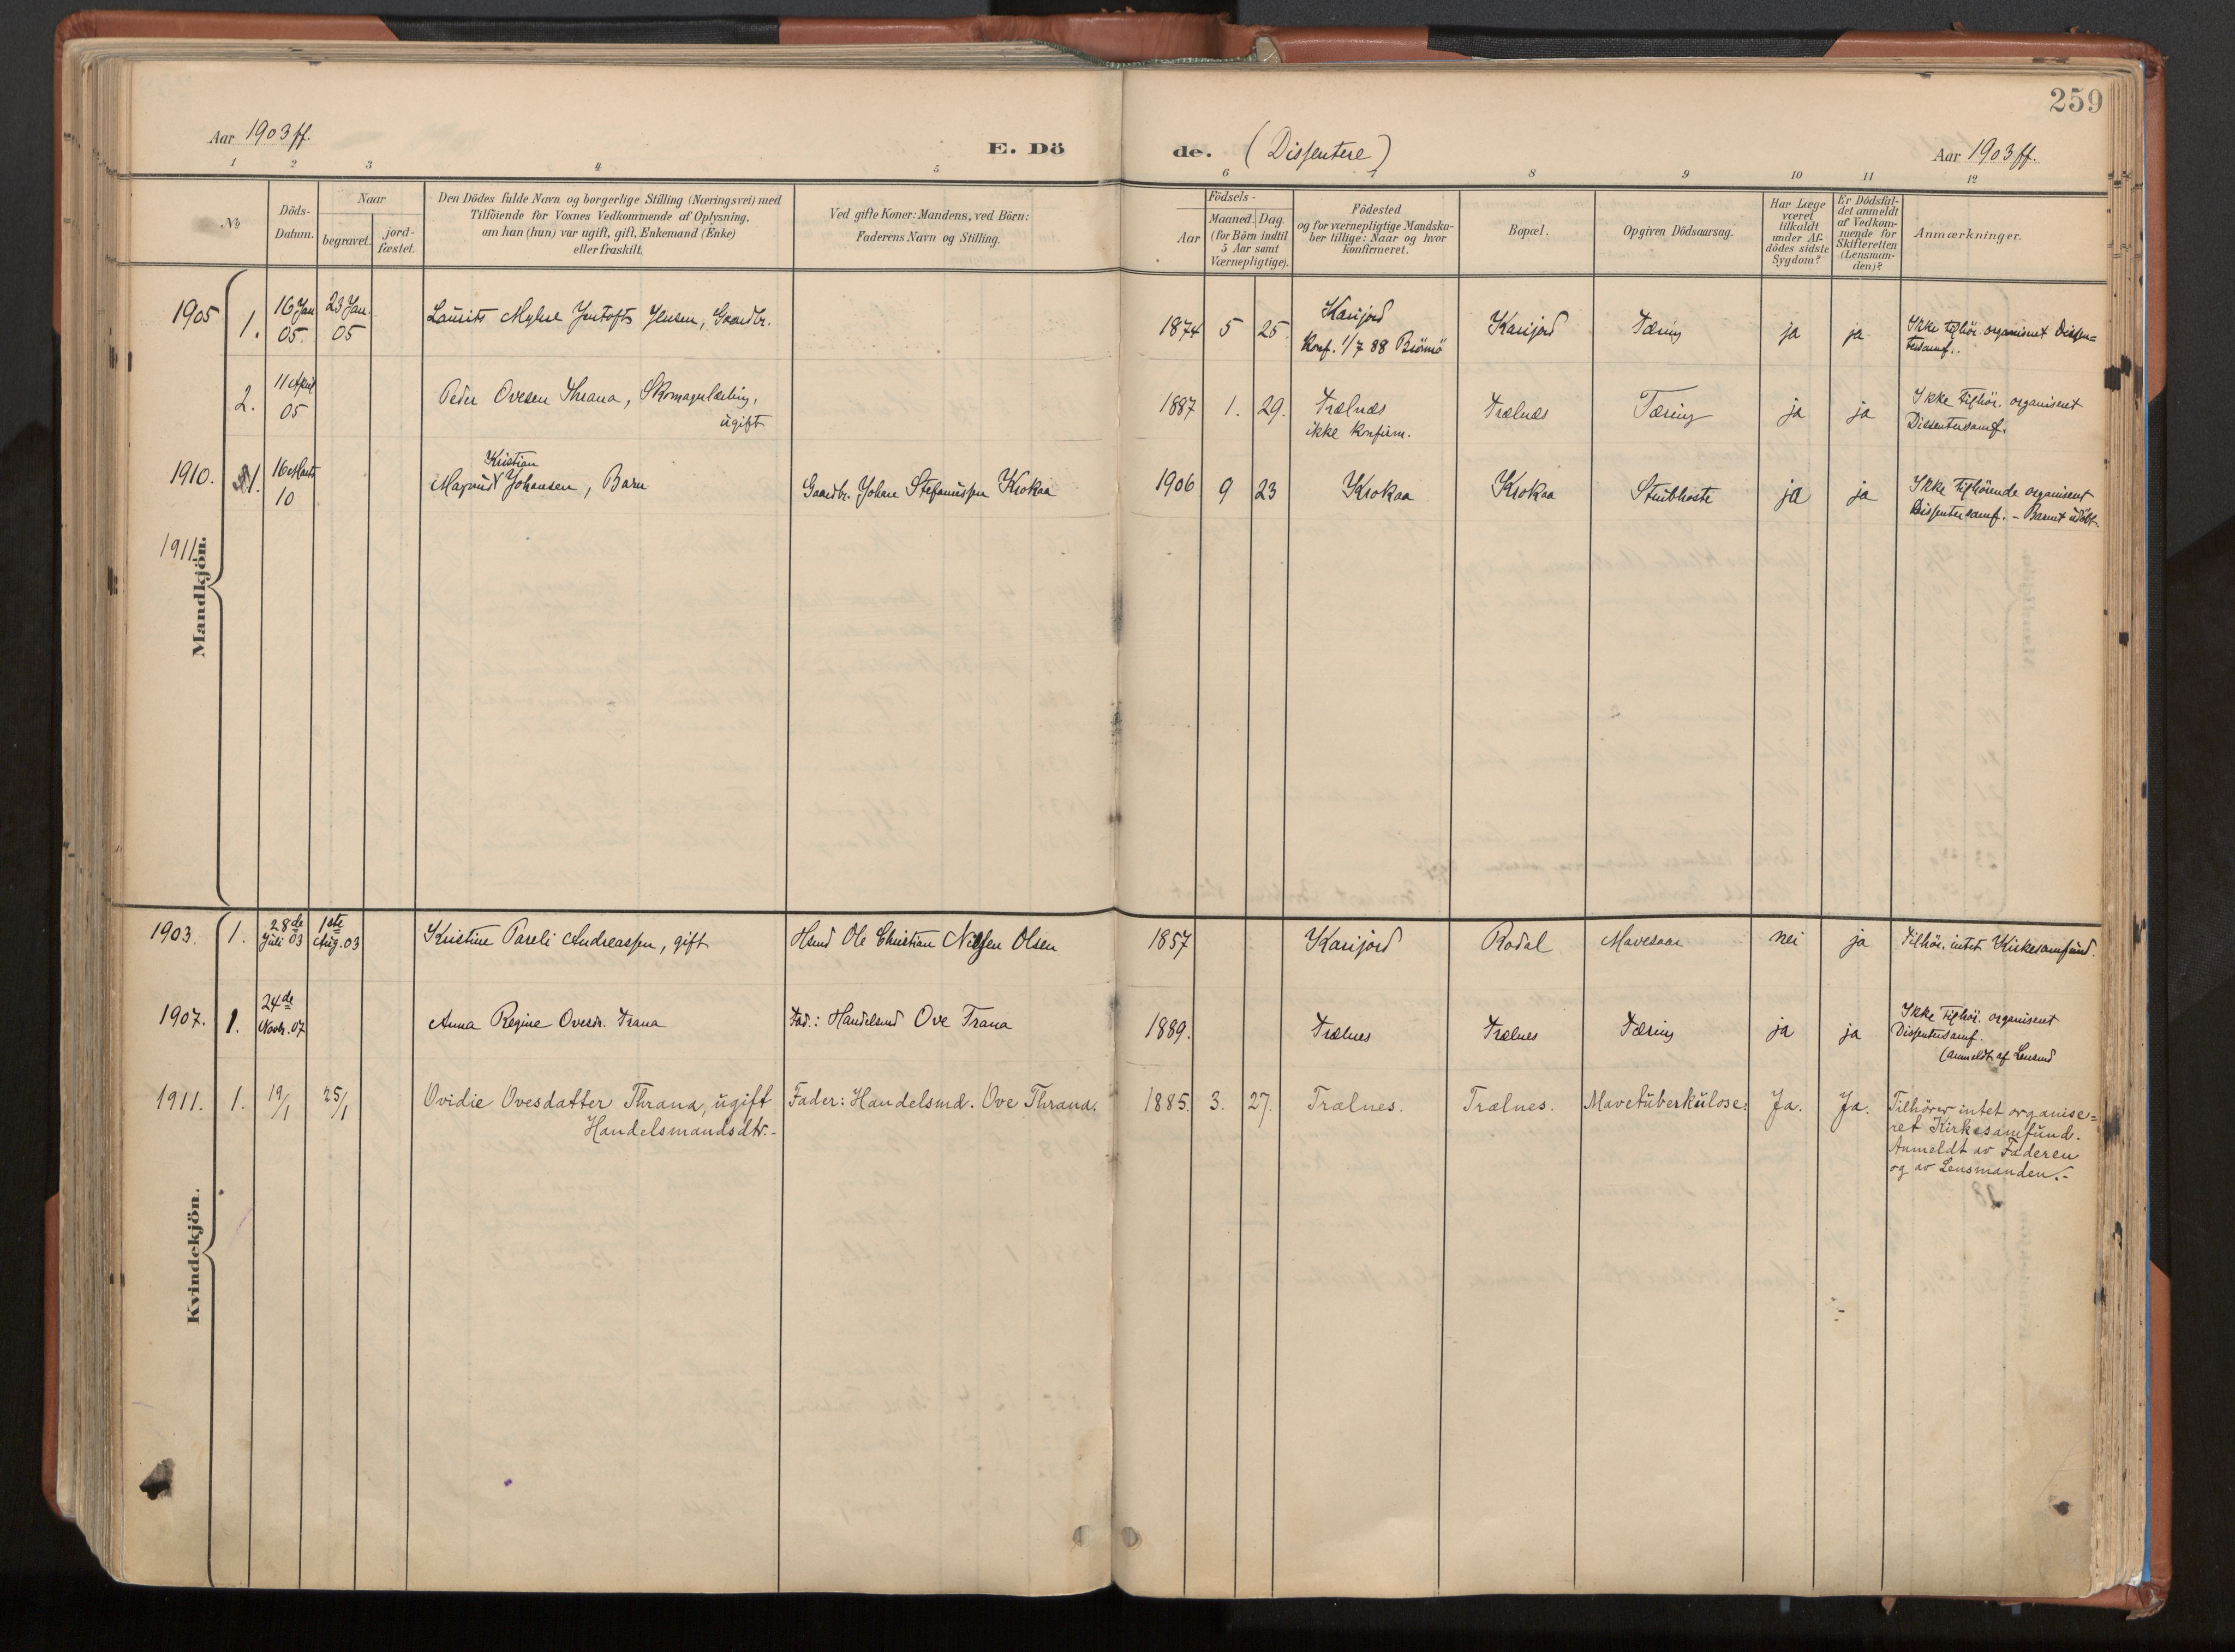 259
Aar 1903 ff.
E. Dö
de. (Dissentere)
Aar 1903 ff.
1 2 3 4 5
6 7 8 9 10 11 12
No
Döds-
Datum.
Naar
begravet.
jord-
fæstet.
Den Dödes fulde Navn og borgerlige Stilling (Næringsvei) med
Tilföiende for Voxnes Vedkommende af Oplysning,
om han (hun) var ugift, gift, Enkemand (Enke)
eller fraskilt.
Ved gifte Koner: Mandens, ved Börn:
Faderens Navn og Stilling.
Födsels-
Aar
Maaned. Dag.
(for Börn indtil
5 Aar samt
Værnepligtige).
Födested
og for værnepligtige Mandska-
ber tillige: Naar og hvor
konfirmeret.
Bopæl.
Opgiven Dödsaarsag.
Har Læge
været
tilkaldt
under Af-
dödes sidste
Sygdom?
Er Dödsfal-
det anmeldt
af Vedkom-
mende for
Skifteretten
(Lensman-
den)?
Anmærkninger.
Mandkjön.
1905 1. 16 Jan 05. 23 Jan. 05 Laurits Jentofts Jensen, Gaardbr. 1874 5 25. Karijord
Konf. 1/7 88 Brönnö
Karijord Tæring ja ja Ikke tilhör. organiseret Dissen=
tersamf..
2. 11 April 05 Peder Ovesen Thrana, Skomagerlærling,
ugift
1887 1. 29. Trælnæs
ikke konfirm.
Trælnæs Tæring ja ja Ikke tilhör. organiseret
Dissentersamf.
1910. 1. 16 Marts 10 Kristian
Magnus Johansen, Barn Gaardbr. Johan Stefanussen Krokaa 1906 9 23 Krokaa Krokaa Strubhoste ja ja Ikke tilhörende organiseret
Dissentersamf. - Barnet udöbt.
1911.
Kvindekjön.
1903. 1. 28de Juli 03 1ste Aug. 03 Kristine Pareli Andreassen, gift Hsmd Ole Christian Nilsen Olsen 1857 Karijord Rodal Mavesaar nei ja Tilhör. intet Kirkesamfund.
1907. 1. 24de Novbr. 07 Anna Regine Ovesdr. Trana Fad.: Handelsmd Ove Trana 1889. Trælnes Trælnes Tæring ja ja Ikke tilhör. organiseret
Dissentersamf.
(anmeldt af Lensmd
1911. 1. 19/1 25/1 Ovidie Ovesdatter Thrana, ugift
Handelsmandsdtr.-
Fader: Handelsmd. Ove Thrana. 1885. 3. 27. Trælnes. Trælnes. Mavetuberkulose. Ja. Ja. Tilhörer intet organise=
ret Kirkesamfund.
Anmeldt av Faderen
og av Lensmanden.-